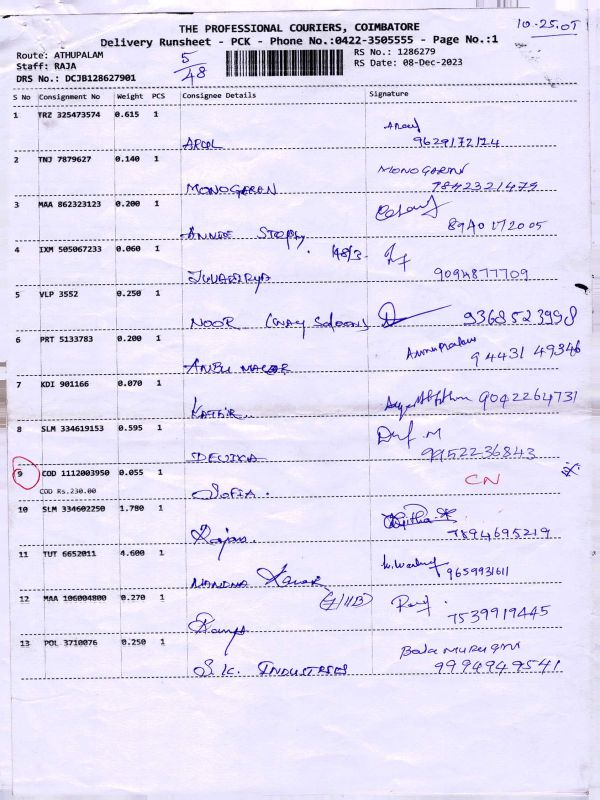 10-25.05
THE PROFESSIONAL COURIERS, COIMBATORE
Delivery Runsheet - PCK - Phone No.:0422-3505555 - Page No.:1
Route: ATHUPALAM 5/48 RS No.: 1286279
Staff: RAJA RS Date: 08-Dec-2023
DRS No.: DCJB128627901
S No Consignment No Weight PCS Consignee Details Signature
1 TRZ 325473574 0.615 1
9629172174
2 TNJ 7879627 0.140 1 MONOGARAN
MONOGARAN 7842321479
3 MAA 862323123 0.200 1
ANNIE 8940172005
4 IXM 505067233 0.060 1 148/3.
9094877709
5 VLP 3552 0.250 1
NOOR 9368523998
6 PRT 5133783 0.200 1
ANBU NAGAR 94431 49346
7 KDI 901166 0.070 1
9042264731
8 SLM 334619153 0.595 1
DEVIKA 9952236843
9 COD 1112003950 0.055 1 CN
COD Rs.230.00 SOFIA.
10 SLM 334602250 1.780 1
7894695219
11 TUT 6652011 4.600 1
9659931611
12 MAA 106004800 0.270 1
7539919445
13 POL 3710076 0.250 1 Bala MURUGAN
S.K. INDUSTRIES 9994949541